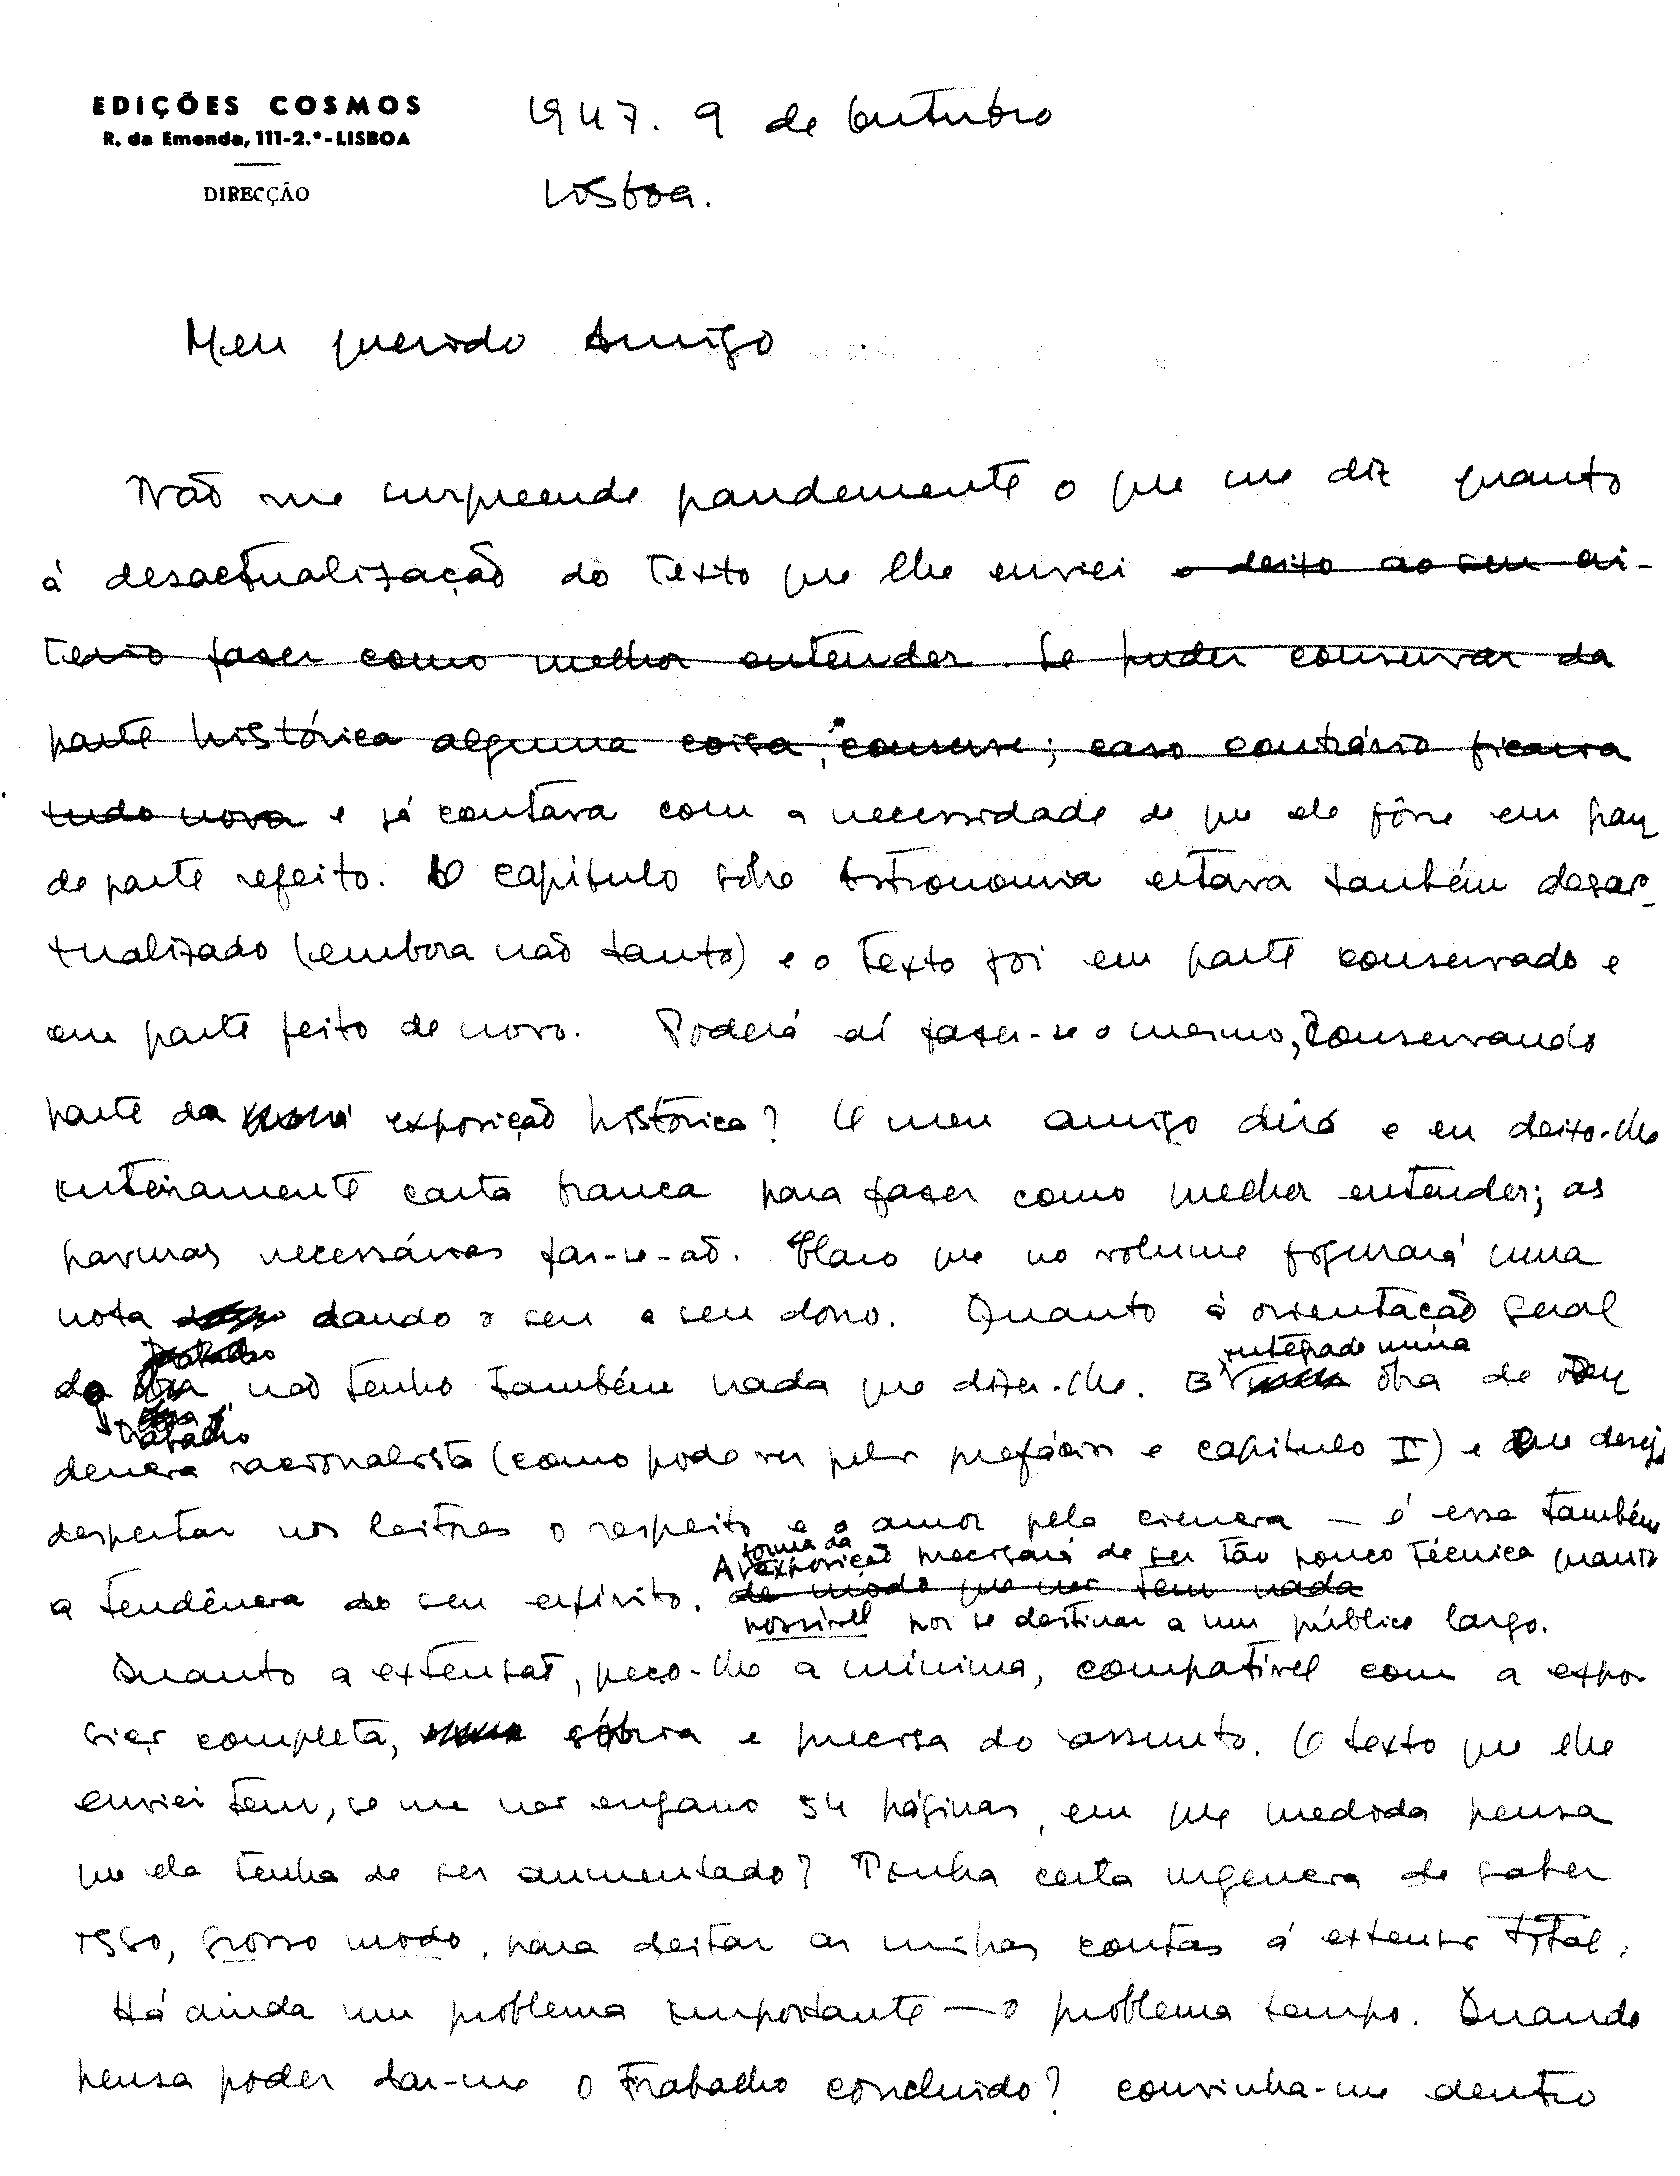 EDIÇÕES COSMOS
R. da Emenda, 111-2.º-LISBOA
DIRECÇÃO
1947. 9 de Outubro
Lisboa.
Meu querido Amigo
Não me surpreende grandemente o que me diz quanto
á desactualização do texto que lhe enviei e deixo ao seu cri-
terio fazer como melhor entender. Se puder conservar da
parte histórica alguma coisa, conserve; caso contrário ficaria
tudo novo e já contava com a necessidade de que ele fôsse em gran
de parte refeito. O capítulo sôbre Astronomia estava também desac-
tualizado (embora não tanto) e o texto foi em parte conservado e
em parte feito de novo. Poderá aí fazer-se o mesmo, conservando
parte da exposição histórica? O meu amigo dirá e eu deixo-lhe
inteiramente carta branca para fazer como melhor entender; as
gravuras necessárias far-se-ão. Claro que no volume figurará uma
nota dando o seu a seu dono. Quanto á orientação geral
do trabalho não tenho também nada que dizer-lhe. integrado numa obra de ten
dencia racionalista (como pode ver pelo prefácio e capitulo I) e que deseja
despertar nos leitores o respeito e o amor pela ciencia — é essa também
a tendência do seu espírito. A forma da exposição precisará de ser tão pouco técnica quanto
de modo que não tem nada
possível por se destinar a um público largo.
Quanto a extensão, peço-lhe a mínima, compatível com a expo-
sição completa, sóbria e precisa do assunto. O texto que lhe
enviei tem, se me não engano 54 páginas, em que medida pensa
que ele tenha de ser aumentado? Tenho certa urgencia de saber
isso, grosso modo, para deitar as minhas contas á extensão total.
Há ainda um problema importante — o problema tempo. Quando
pensa poder dar-me o trabalho concluido? convinha-me dentro